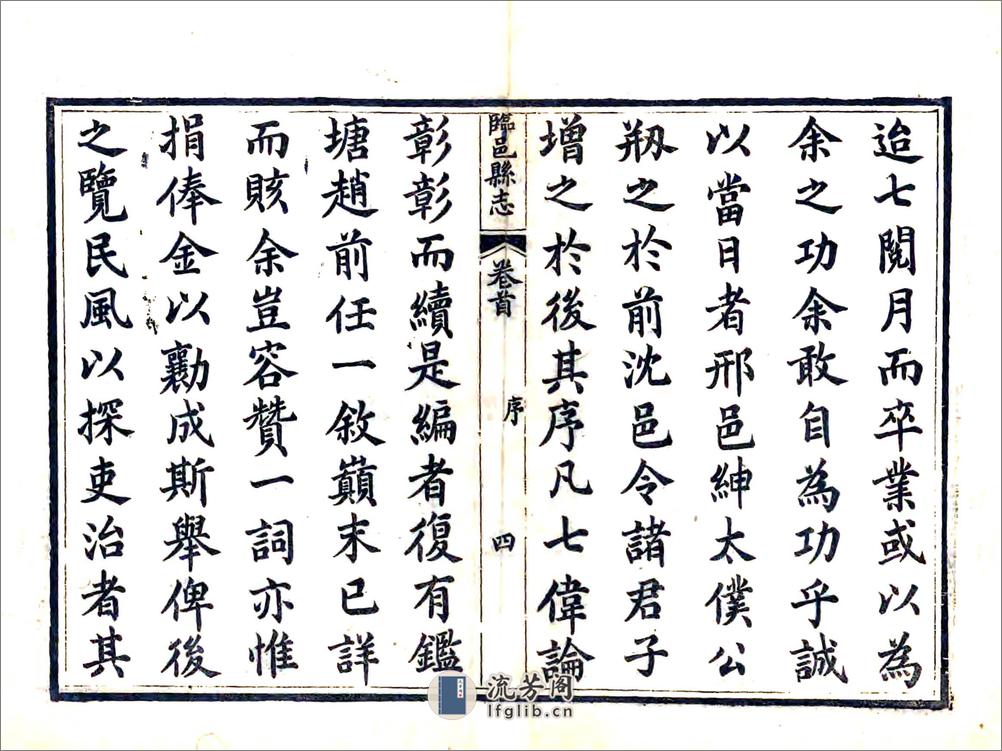 迨七閱月而卒業或以為
余之功余敢自為功乎誠
以當日者邢邑紳太僕公
剏之於前沈邑令諸君子
增之於後其序凡七偉論
臨邑縣志 卷首 序 四
彰彰而續是編者復有鑑
塘趙前任一敘巔末已詳
而賅余豈容贊一詞亦惟
捐俸金以勷成斯舉俾後
之覽民風以探吏治者其
流芳阁
lfglib.cn